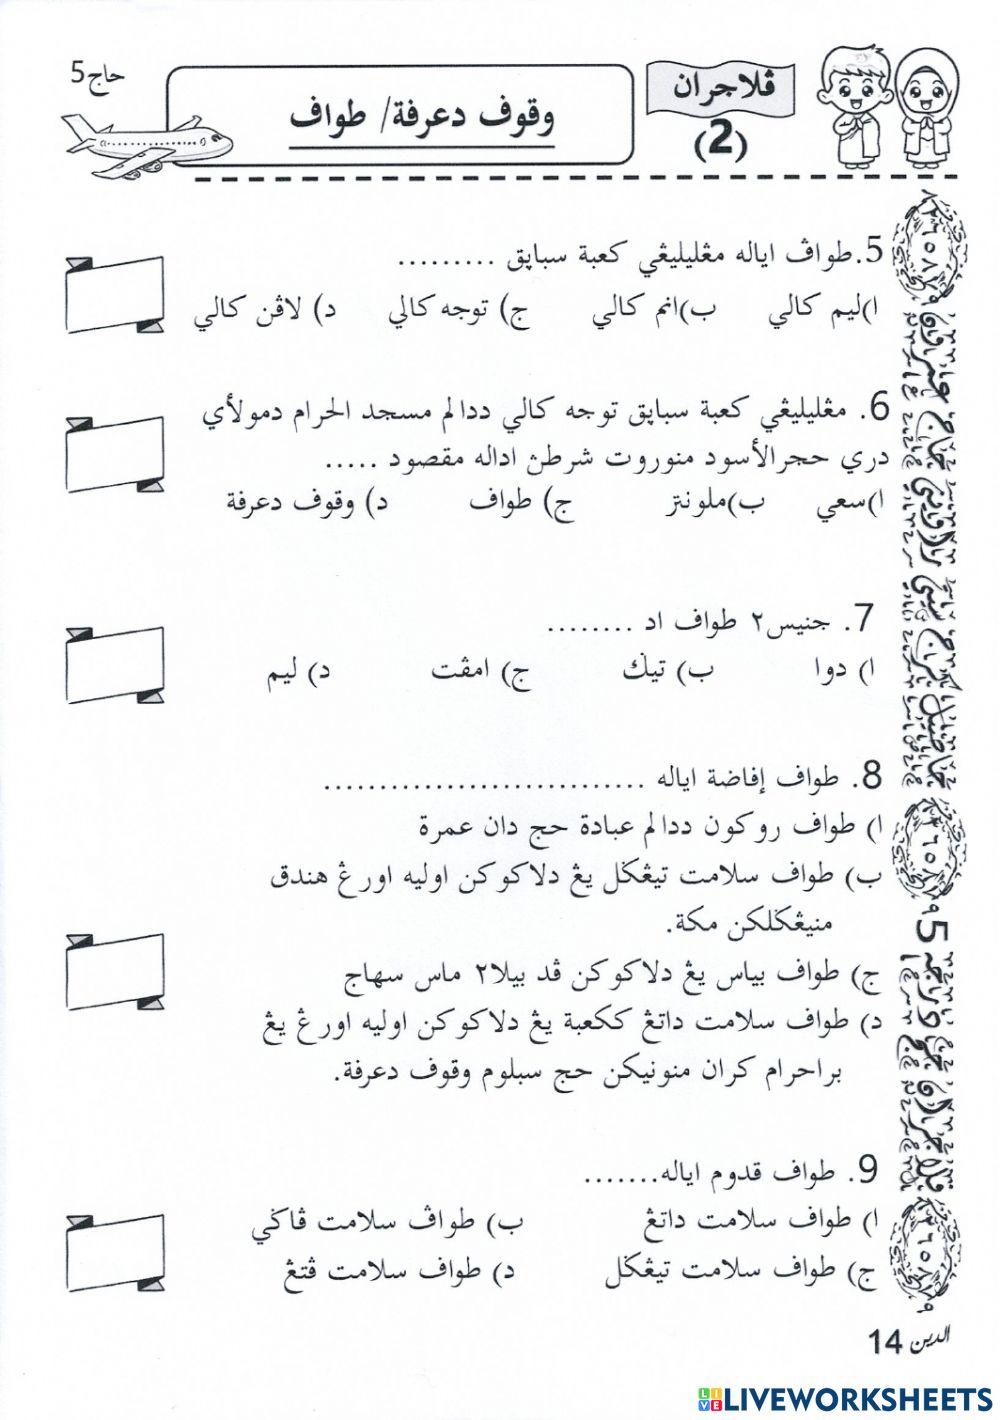 حاج 5
ڤلاجران
(2)
وقوف دعرفة/ طواف
5. طواڤ اياله مڠليليڠي كعبة سباڽق .........
ا)ليم كالي ب)انم كالي ج) توجه كالي د) لاڤن كالي
6. مڠليليڠي كعبة سباڽق توجه كالي ددالم مسجد الحرام دمولأي
دري حجرالأسود منوروت شرطڽ اداله مقصود .....
ا)سعي ب)ملونتر ج) طواف د) وقوف دعرفة
7. جنيس٢ طواف اد ........
ا) دوا ب) تيݢ ج) امڤت د) ليم
8. طواف إفاضة اياله .............................
ا) طواف روكون ددالم عبادة حج دان عمرة
ب) طواف سلامت تيڠݢل يڠ دلاكوكن اوليه اورڠ هندق
منيڠݢلكن مكة.
ج) طواف بياس يڠ دلاكوكن ڤد بيلا٢ ماس سهاج
د) طواف سلامت داتڠ ككعبة يڠ دلاكوكن اوليه اورڠ يڠ
براحرام كران منونيكن حج سبلوم وقوف دعرفة.
9. طواف قدوم اياله.......
ا) طواف سلامت داتڠ ب) طواڤ سلامت ڤاݢي
ج) طواف سلامت تيڠݢل د) طواف سلامت ڤتڠ
الدين 14
LIVEWORKSHEETS